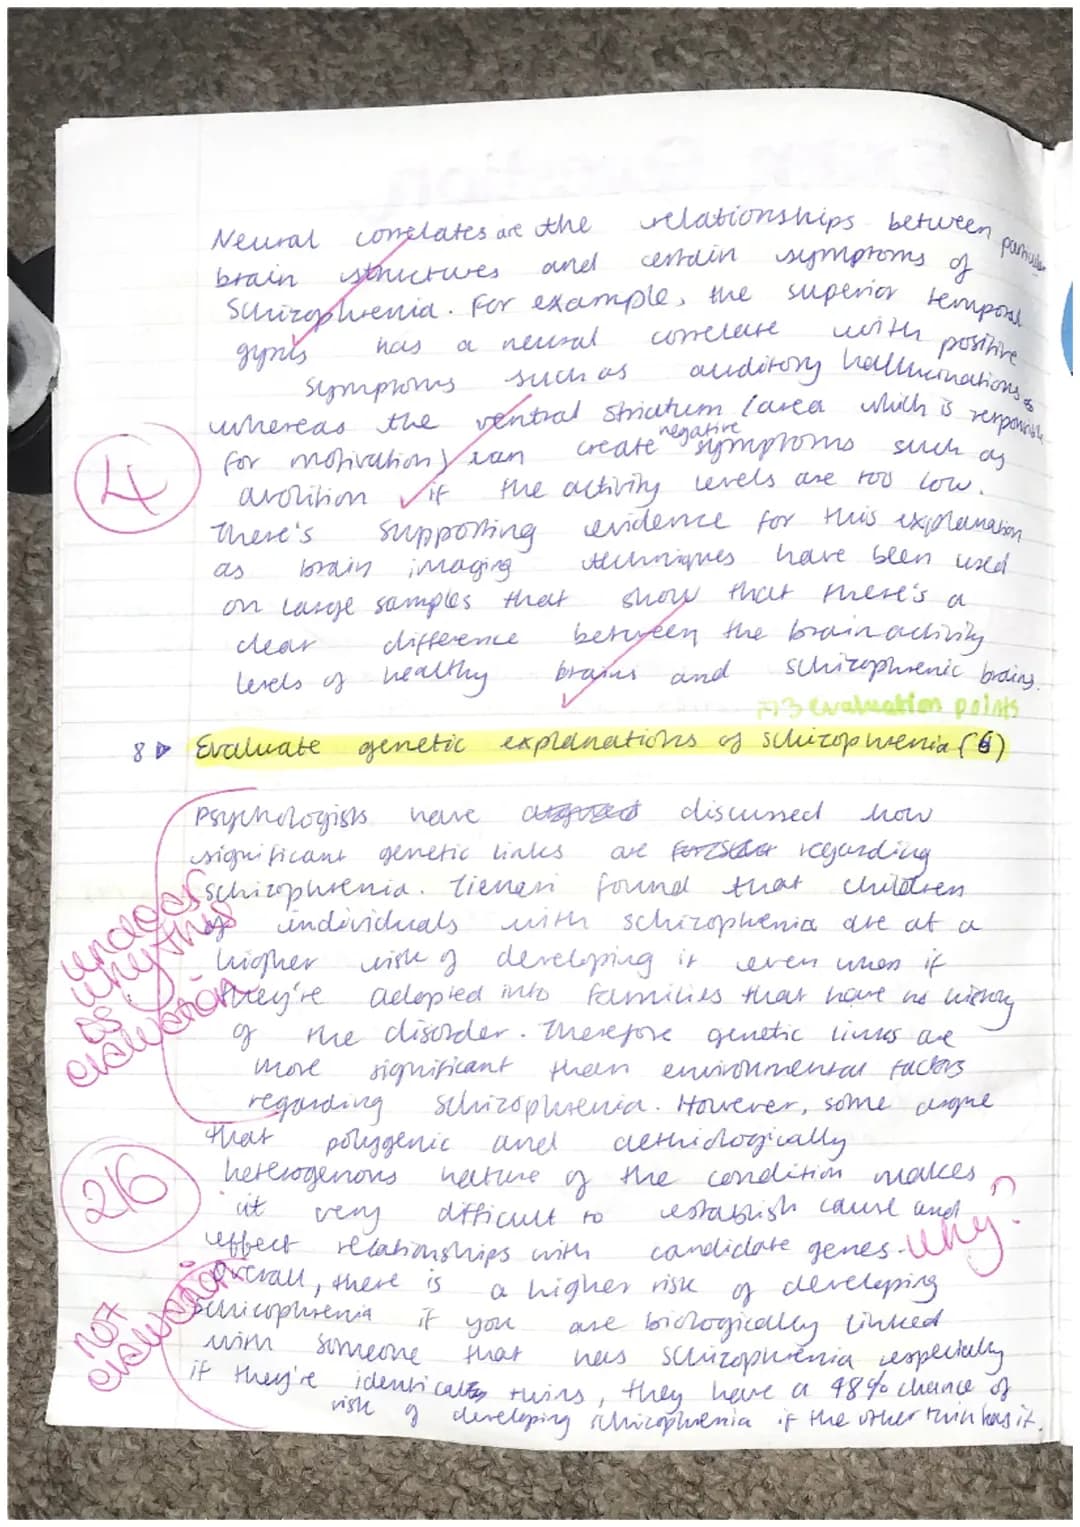 Neural correlates are the relationships between particular
brain structures and certain symptoms of
Schizophrenia. For example, the superior temporal
gyrus has a neural correlate with positive
symptoms such as auditory hallucinations
whereas the ventral striatum (area which is responsible
for motivation) can create negative symptoms such as
avolition if the activity levels are too low.
There's supporting evidence for this explanation
as brain imaging techniques have been used
on large samples that show that there's a
clear difference between the brain activity
levels of healthy brains and schizophrenic brains.
4
3 evaluation points
8 Evaluate genetic explanations of schizophrenia (6)
Psychologists have discussed how
significant genetic links are regarding
schizophrenia. Tienari found that children
of individuals with schizophrenia are at a
higher risk of developing it even when if
they're adopted into families that have no history
of the disorder. Therefore genetic links are
more significant than environmental factors
regarding schizophrenia. However, some argue
that polygenic and aethiologically
heterogenous nature of the condition makes
it very difficult to establish cause and
effect relationships with candidate genes.
why?
Overall, there is a higher risk of developing
schizophrenia if you are biologically linked
with someone that has schizophrenia especially
if they're identical twins, they have a 48% chance of
risk of developing schizophrenia if the other twin has it.
unclear
why this
is
evaluation
2/6
not
evaluation